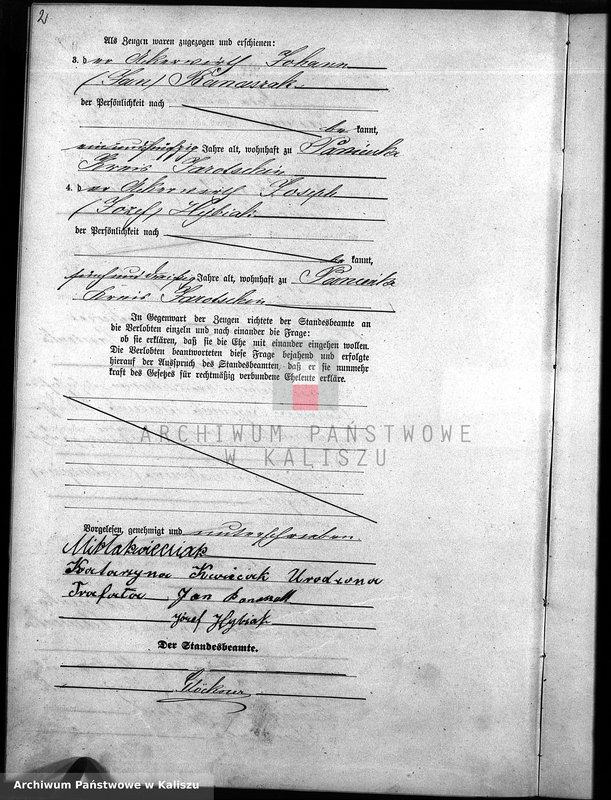 2
Als Zeugen waren zugezogen und erschienen:
3. der Ackerwirth Johann
(Jan) Banaszak
der Persönlichkeit nach
be kannt,
einundfünfzig Jahre alt, wohnhaft zu Panienka
Kreis Jarotschin
4. der Ackerwirth Joseph
(Jozef) Hybiak
der Persönlichkeit nach
be kannt,
fünfunddreißig Jahre alt, wohnhaft zu Panienka
Kreis Jarotschin
In Gegenwart der Zeugen richtete der Standesbeamte an
die Verlobten einzeln und nach einander die Frage:
ob sie erklären, daß sie die Ehe mit einander eingehen wollen.
Die Verlobten beantworteten diese Frage bejahend und erfolgte
hierauf der Ausspruch des Standesbeamten, daß er sie nunmehr
kraft des Gesetzes für rechtmäßig verbundene Eheleute erkläre.
ARCHIWUM PAŃSTWOWE
W KALISZU
Vorgelesen, genehmigt und unterschrieben
Katarzyna Kwiecak Urodzona
Trafata Jan Banaszak
Józef Hybiak
Der Standesbeamte.
Glöckner
Archiwum Państwowe w Kaliszu